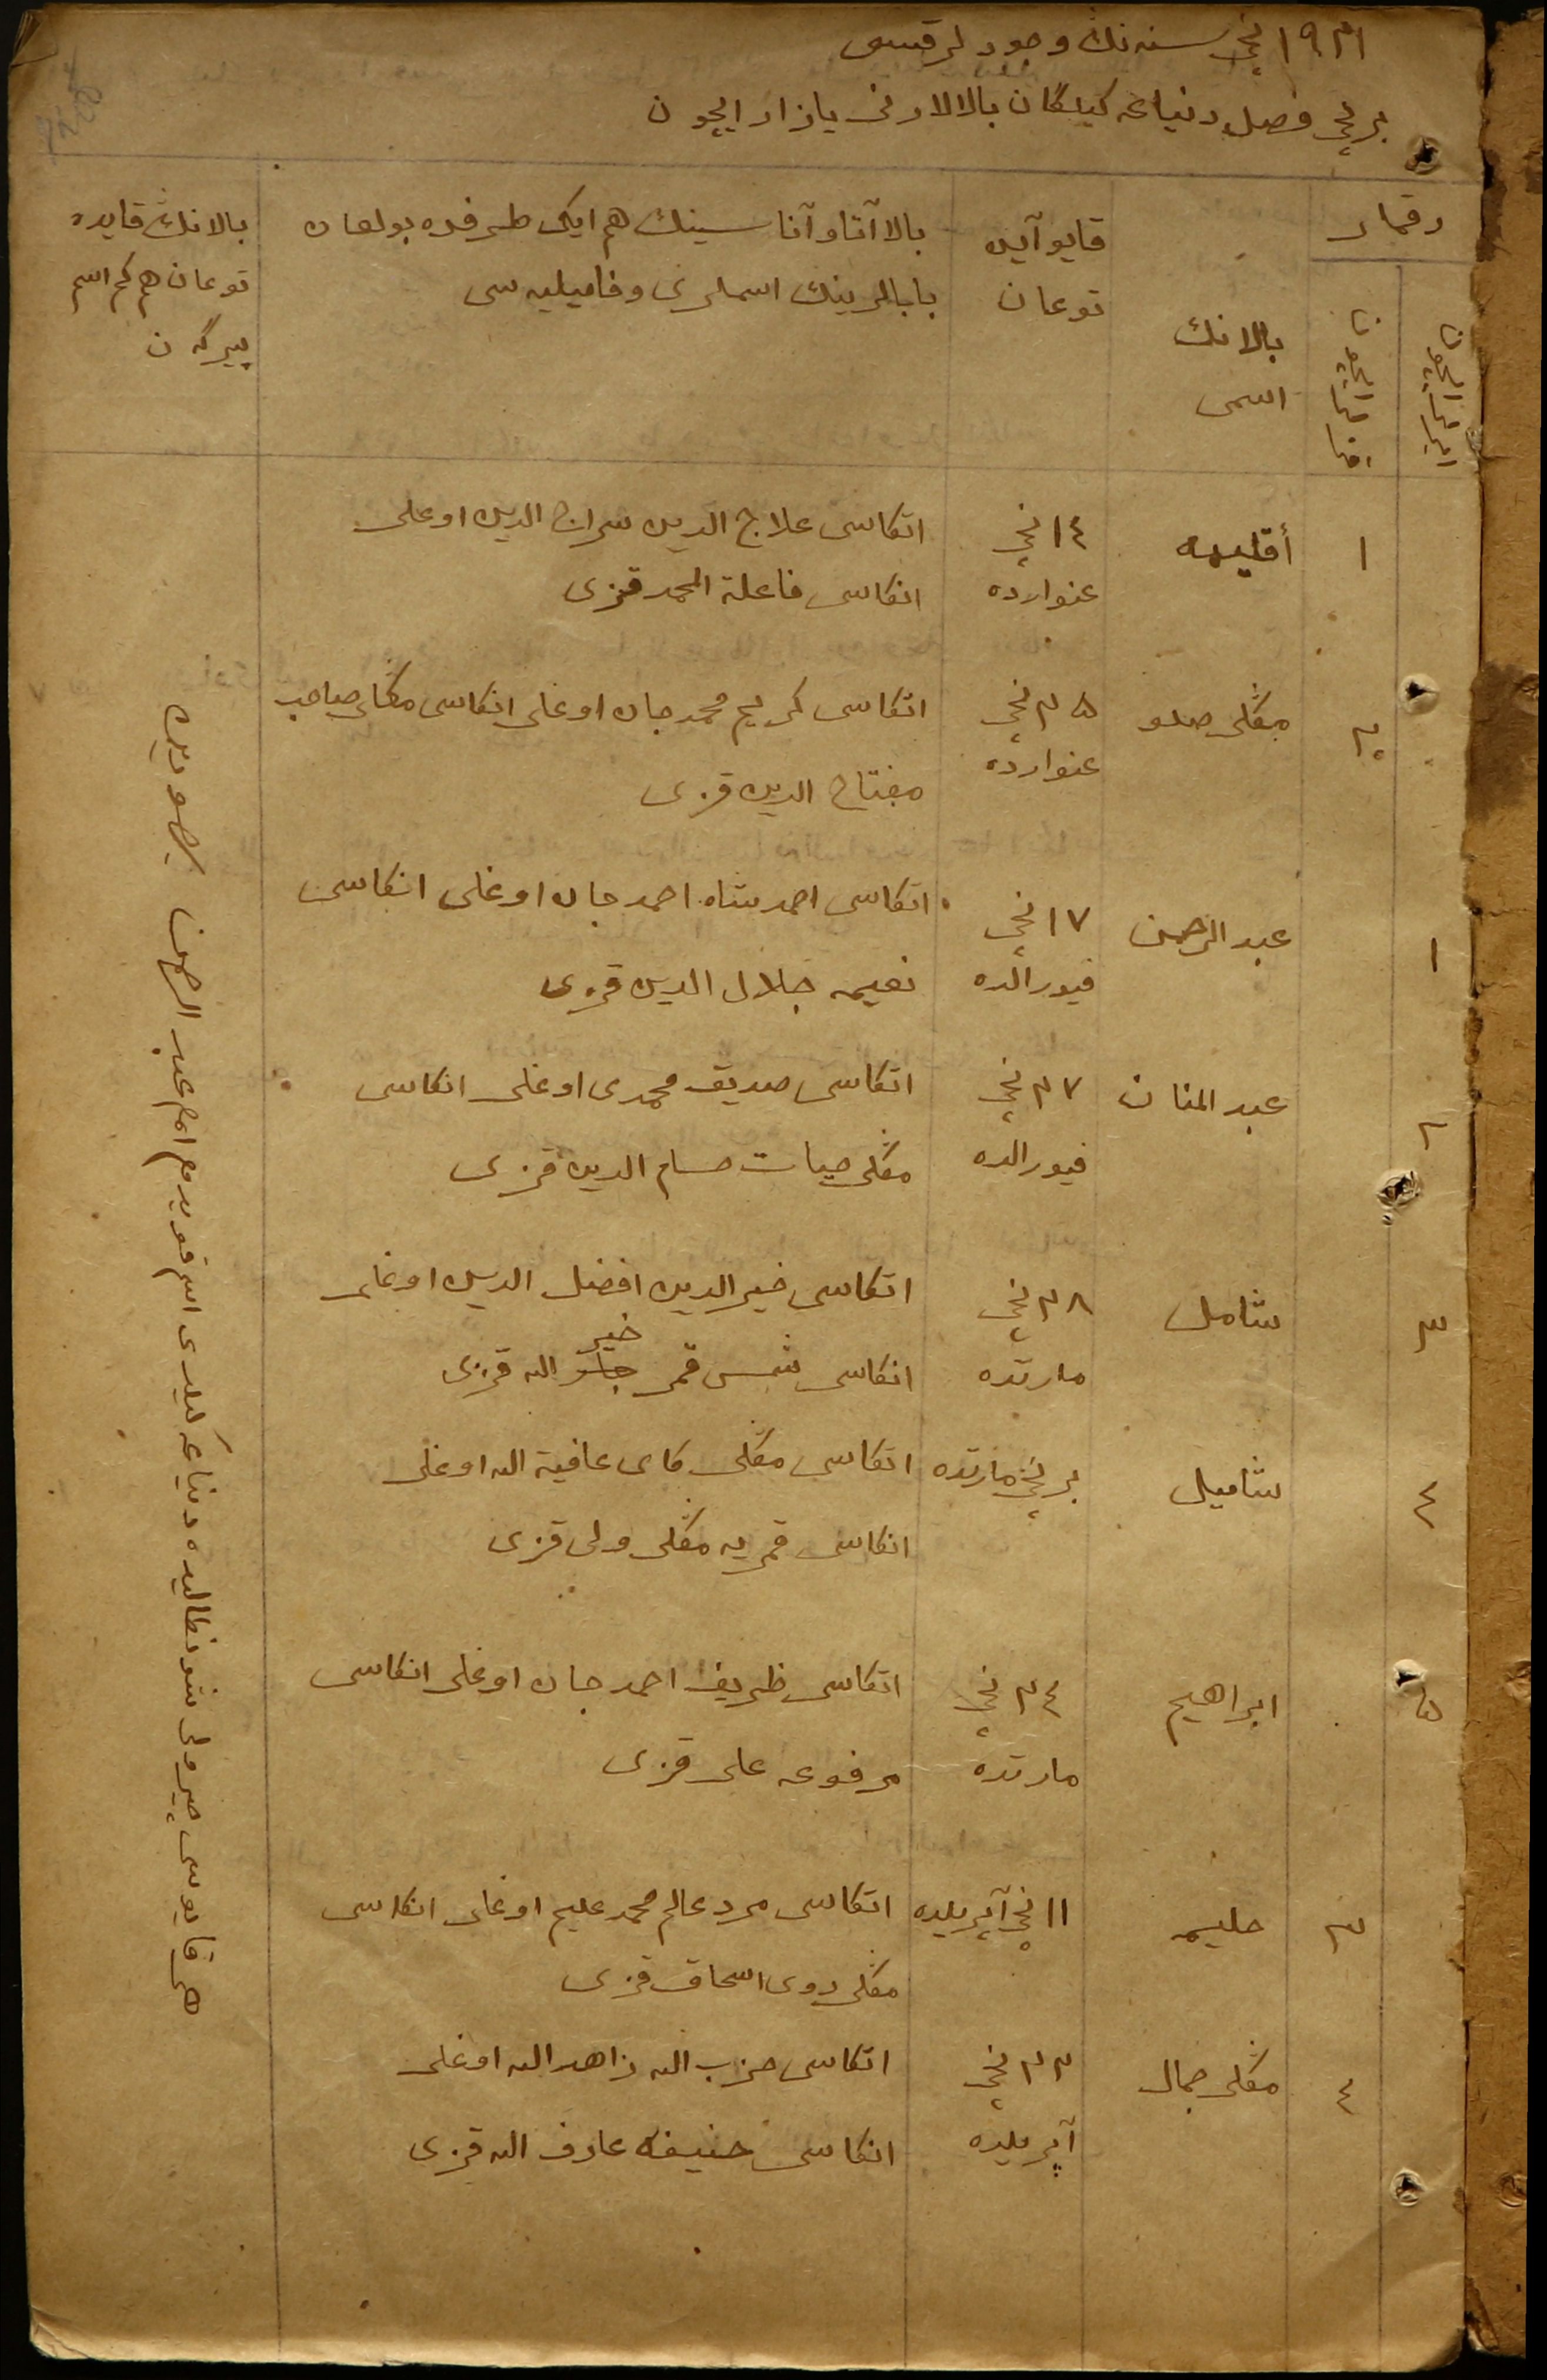 ١٩٢١ نچی سنه نڭ وجود لر قسمی
برنچی فصل دنیاعه کیلگان بالالارنی یازار ایچون
رقملر
ایرلر ایچون
قزلر ایچون
بالانك
اسمی
قایو آیده
توعان
بالا آتا و آنا سینك هم ایکی طرفده بولعان
بابالرینك اسملری و فامیلیه سی
بالانڭ قایده
توعان هم کم اسم
بیرگه ن
١
أقلیمه
١٤ نچی
عنوارده
اتكاسی علاج الدین سراج الدین اوغلی
انكاسی فاعلة المحمد قزی
٢
مڭلی صلو
٢٥ نچی
عنوارده
اتكاسی کریم محمد جان اوغلی انكاسی مڭلی صاحب
مفتاح الدین قزی
١
عبد الرحمن
١٧ نچی
فیورالده
اتكاسی احمد شاه احمد جان اوغلی انكاسی
نعیمه جلال الدین قزی
٢
عبد المنان
٢٧ نچی
فیورالده
اتكاسی صدیق محمدی اوغلی انكاسی
مڭلی حیات حسام الدین قزی
٣
شامل
٢٨ نچی
مارتده
اتكاسی خیر الدین افضل الدین اوغلی
انكاسی شمس قمر خیر الله قزی
٤
شامیل
برنچی مارتده
اتكاسی مڭلی کای عافیة الله اوغلی
انكاسی قمریه مڭلی ولی قزی
٥
ابراهیم
٢٤ نچی
مارتده
اتكاسی ظریف احمد جان اوغلی انكاسی
مرفوعه علی قزی
٣
حلیمه
١١ نچی آپریلده
اتكاسی مرد عالم محمد علیم اوغلی انكاسی
مڭلی روی اسحاق قزی
٤
مڭلی جمال
٢٢ نچی
آپریلده
اتكاسی حزب الله زاهد الله اوغلی
انكاسی حنیفه عارف الله قزی
هر قایوسی دنیاعه کیلدی اسم قویدم امام عبد الرحمن